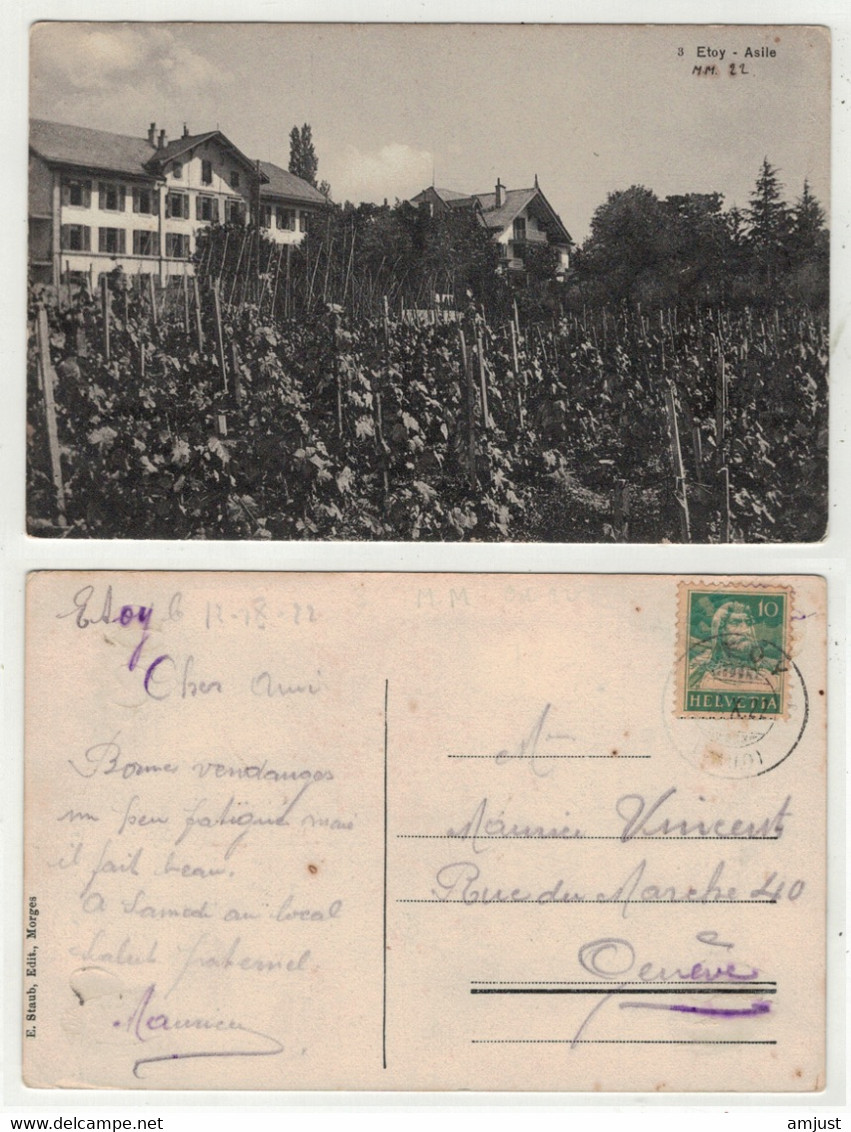 3 Etoy - Asile
MM. 22
Etoy le 22
Cher Ami
Bonnes vendanges
un peu fatigué mais
il fait beau.
A Samedi au local
Salut fraternel
Maurice
E. Staub, Edit., Morges
10
HELVETIA
Maurice Vincent
Rue du Marché 40
Genève
amjust